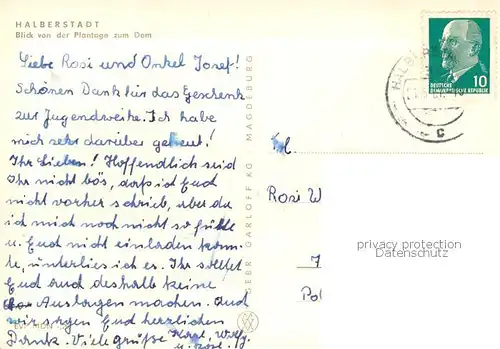 HALBERSTADT
Blick von der Plantage zum Dom
Liebe Rosi und Onkel Josef!
Schönen Dank für das Geschenk
zur Jugendweihe. Ich habe
mich sehr darüber gefreut!
Ihr Lieben! Hoffendlich seid
Ihr nicht bös, dafs ich Eud
nicht vorher schrieb, aber da
ich mich noch nicht so fühlte
u. Eud nicht einladen konn-
te, unterlies ich es. Ihr solltet
Eud auch deshalb keine
Auslagen machen. Auch
wir sagen Eud herzlichen
Dank. Viele grüße
u.
GEBR. GARLOFF KG. MAGDEBURG
DEUTSCHE
DEMOKRATISCHE REPUBLIK
10
HALBE
c
Rosi W
7
Pol
privacy protection
Datenschutz